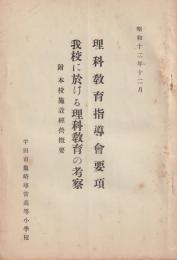 昭和十二年十二月
理科教育指導會要項
我校に於ける理科教育の考察
附 本校施設經營概要
宇田市龜崎尋常高等小學校